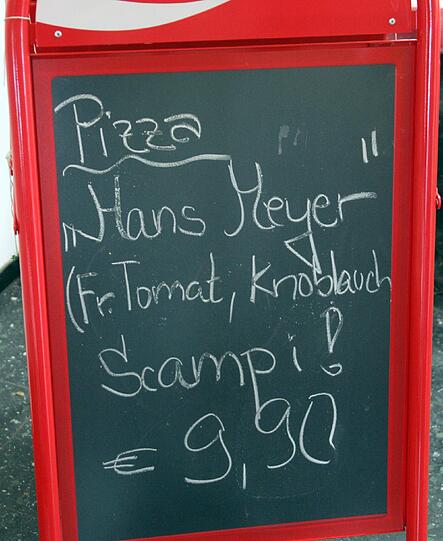 Pizza
„Hans Meyer"
(Fr. Tomat, Knoblauch
Scampi!
€ 9,90